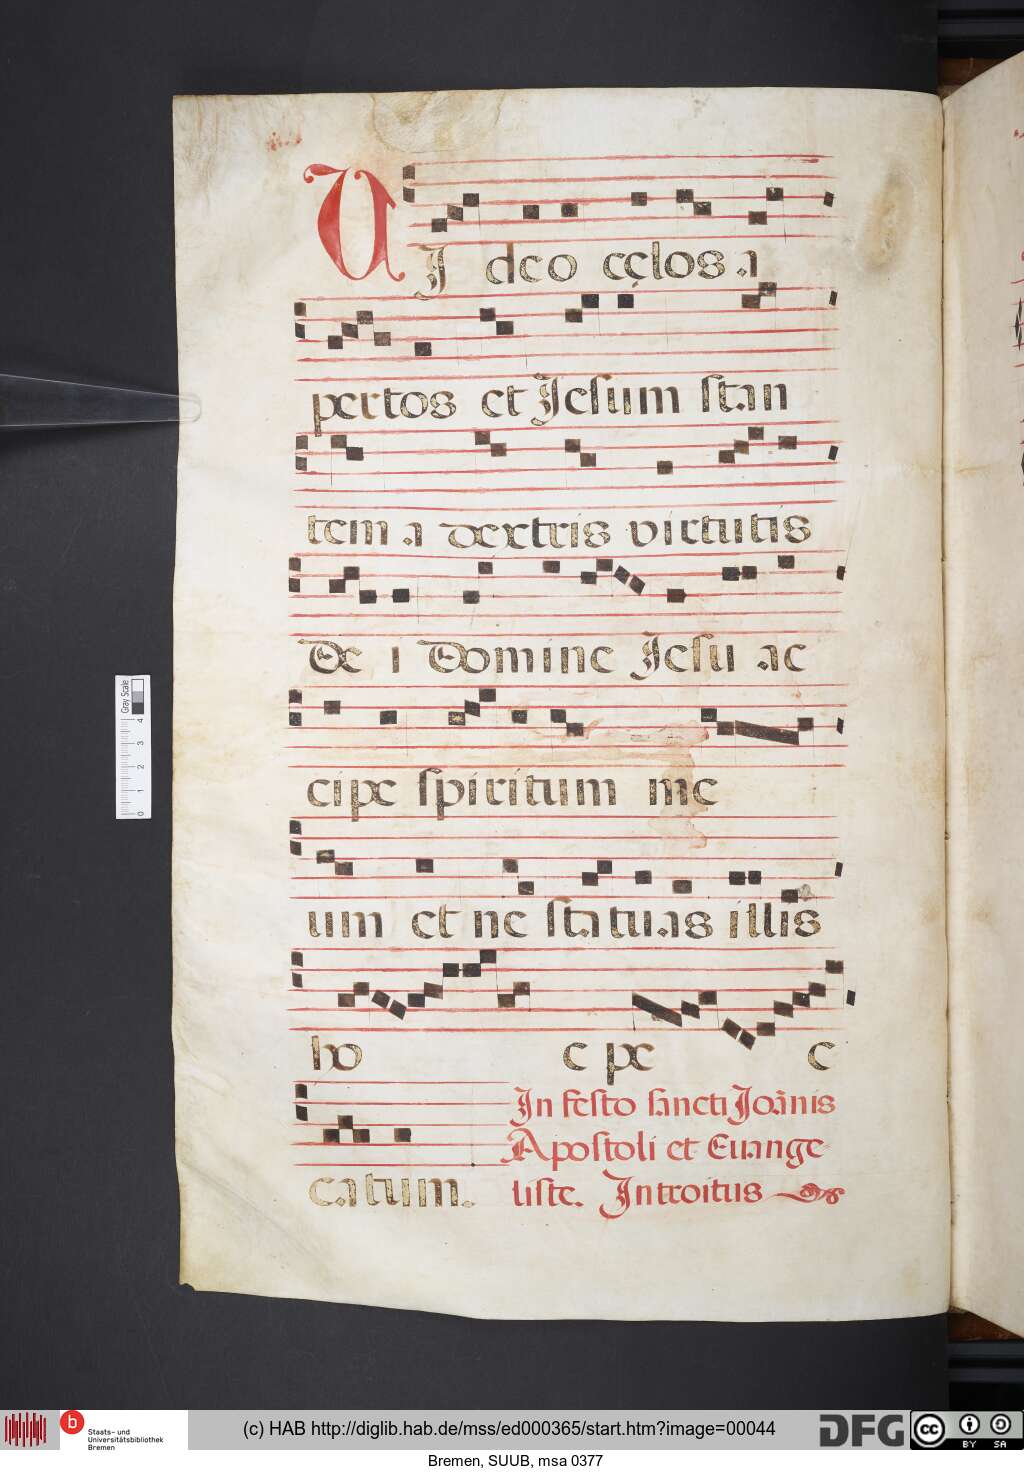 VI deo cęlos a
pertos et Jesum stan
tem a dextris virtutis
De i Domine Jesu ac
cipe spiritum me
um et ne statuas illis
ho c pec
catum.
In festo sancti Joãnis
Apostoli et Evange
liste. Introitus
Gray Scale
4 3 2 1 0
b Staats- und
Universitätsbibliothek
Bremen
(c) HAB http://diglib.hab.de/mss/ed000365/start.htm?image=00044
DFG
cc BY SA
Bremen, SUUB, msa 0377